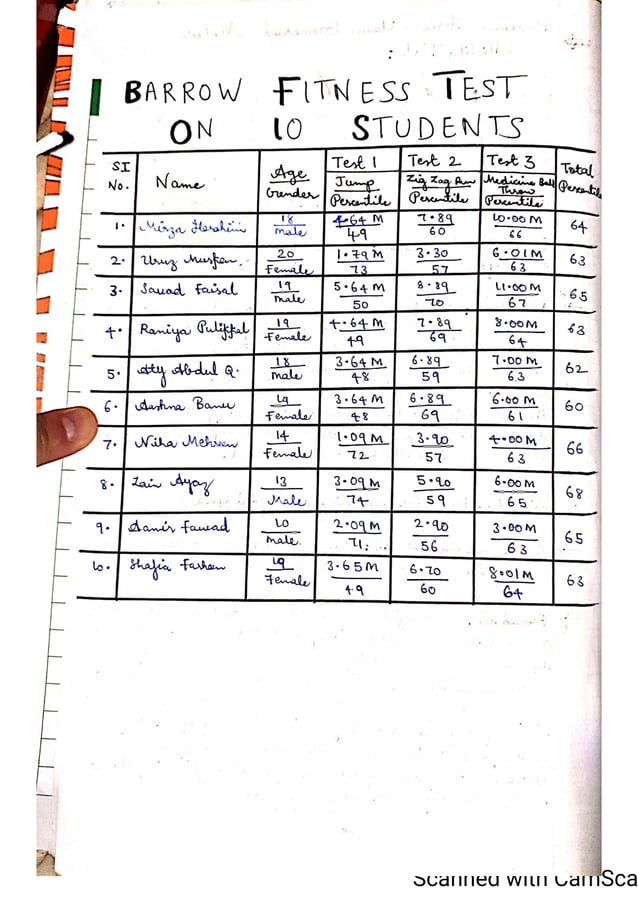 BARROW FITNESS TEST
ON 10 STUDENTS
SI No. Name Age Gender Test 1 Jump Percentile Test 2 Zig Zag Run Percentile Test 3 Medicine Ball Throw Percentile Total Percentile
1. Mirza 18 male 4.64 M 49 7.89 60 10.00 M 66 64
2. 20 Female 1.79 M 73 3.30 57 6.01M 63 63
3. Sauad Faisal 19 male 5.64 M 50 8.89 70 11.00 M 67 65
4. Raniya Pulikkal 19 Female 4.64 M 49 7.89 69 8.00M 64 63
5. Aty Abdul Q. 18 male 3.64 M 48 6.89 59 7.00 M 63 62
6. Aashna Banu 19 Female 3.64 M 48 6.89 69 6.00 M 61 60
7. Niha 14 Female 1.09 M 72 3.90 57 4.00 M 63 66
8. Zain Ayaz 13 Male 3.09 M 74 5.90 59 6.00 M 65 68
9. Aamir Fawad 10 male. 2.09 M 71 2.90 56 3.00 M 63 65
10. Shafia 19 Female 3.65 M 49 6.70 60 8.01M 64 63
Scanned with CamSca